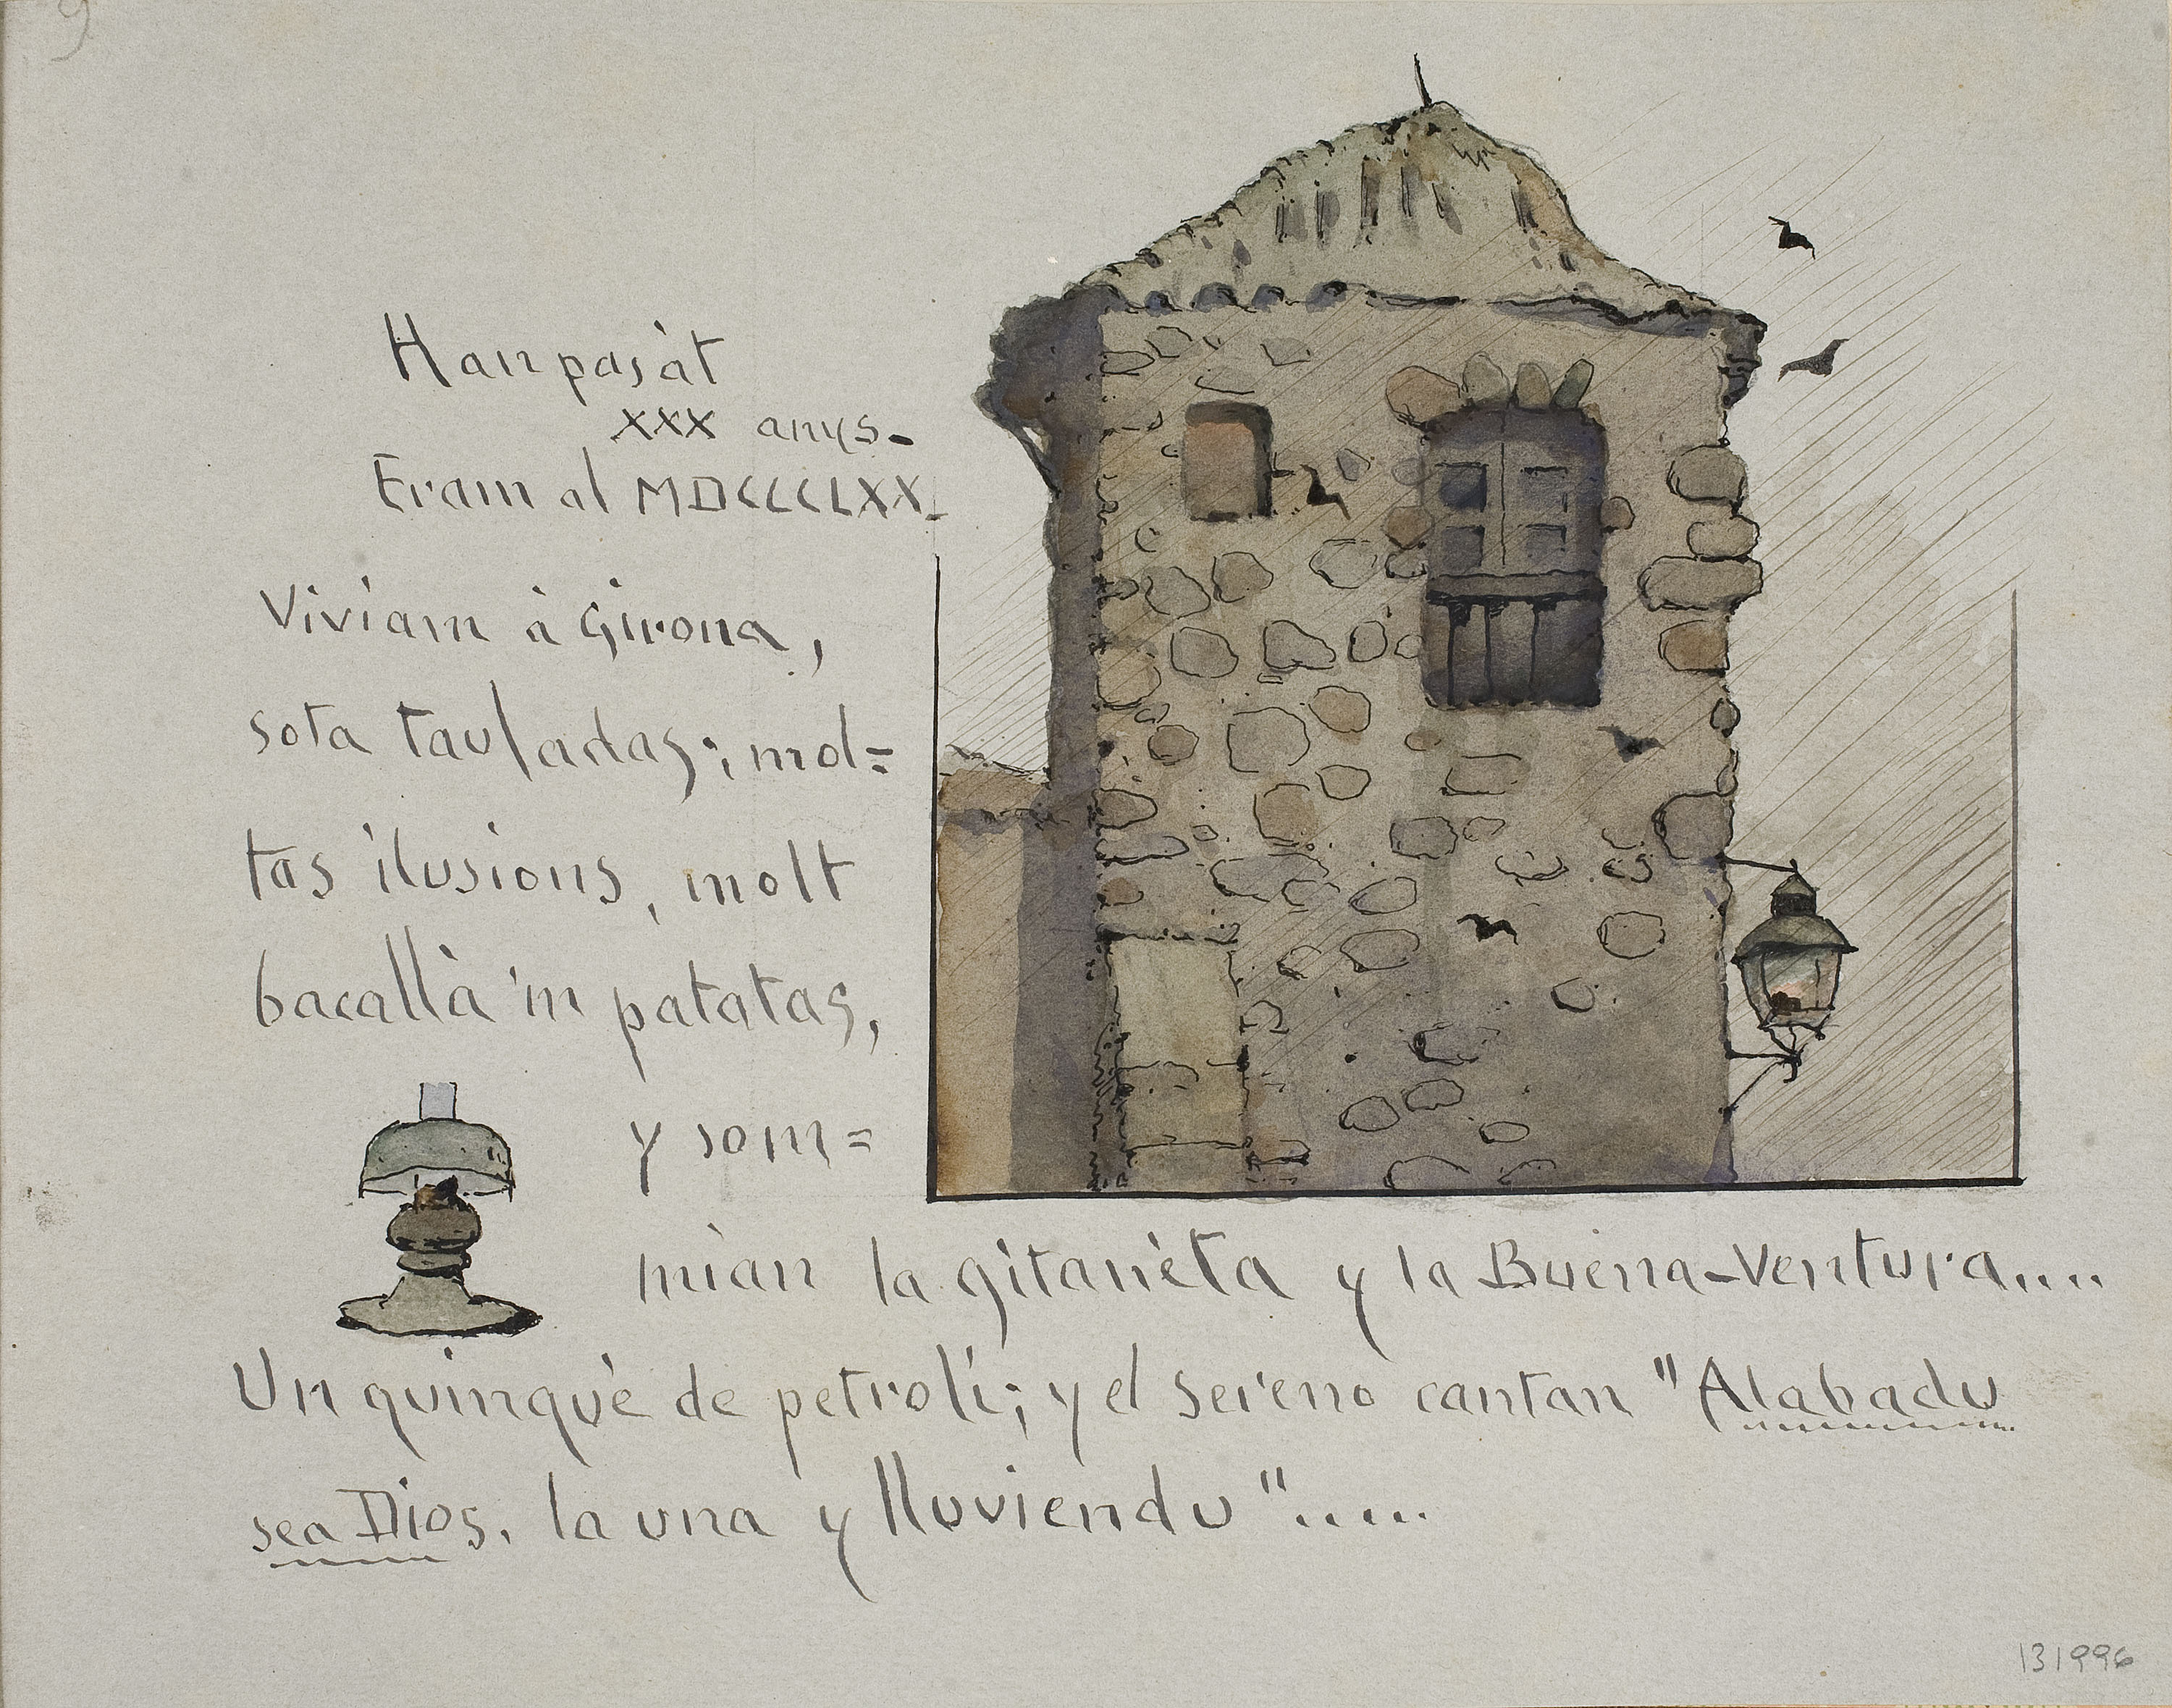 9
Han pasàt
XXX anys-
Eram al MDCCCCLXX-
Viviam à Girona,
sota tauladas; mol=
tas ilusions, molt
bacallà 'm patatas,
y som=
mian la gitanèta y la Buena-Ventura....
Un quinquè de petroli; y el sereno cantan "Alabadu
sea Dios, la una y lluviendu".....
131996